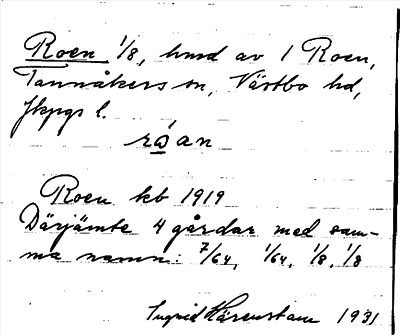 Roen 1/8, hmd av 1 Roen,
Tannåkers sn, Västbo hd,
Jkpgs l.
råan
Roen kb 1919
Därjämte 4 gårdar med sam-
ma namn: 7/64, 1/64, 1/8, 1/8
Ingrid Härenstam 1931